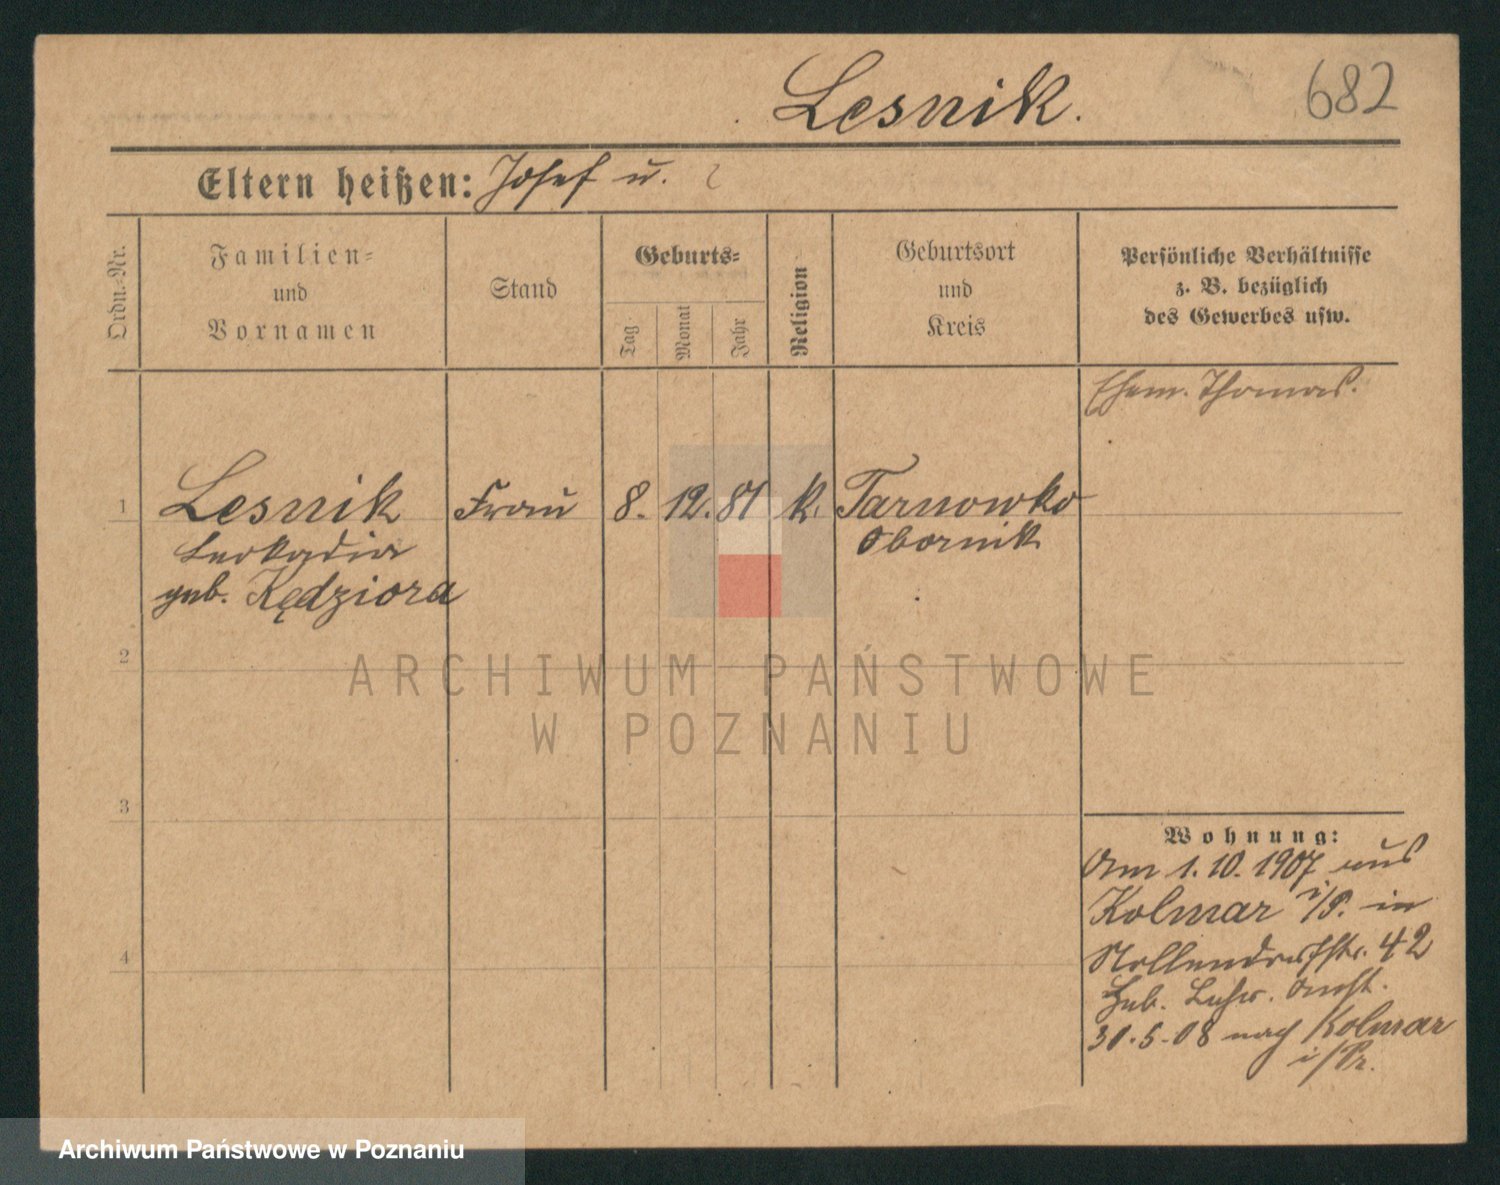 Lesnik.
682
Eltern heißen: Josef u. ?
Ordn.-Nr.
Familien-
und
Vornamen
Stand
Geburts-
Tag
Monat
Jahr
Religion
Geburtsort
und
Kreis
Persönliche Verhältnisse
z. B. bezüglich
des Gewerbes usw.
Ehem. Thomas.
1 Lesnik Frau 8. 12. 81 k. Tarnowko
Leokadia Obornik
geb. Kędziora
2
3
4
Wohnung:
Am 1.10.1907 aus
Kolmar i/P. in
Nollendorfstr. 42
Geb. Anst.
30.5.08 nach Kolmar
i/Pr.
ARCHIWUM PAŃSTWOWE
W POZNANIU
Archiwum Państwowe w Poznaniu